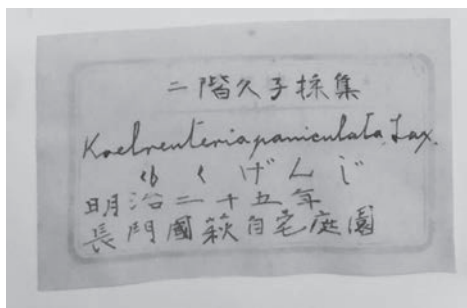 二階久子採集
Koelreuteria paniculata, Lax.
もくげんじ
明治二十五年
長門國萩自宅庭園